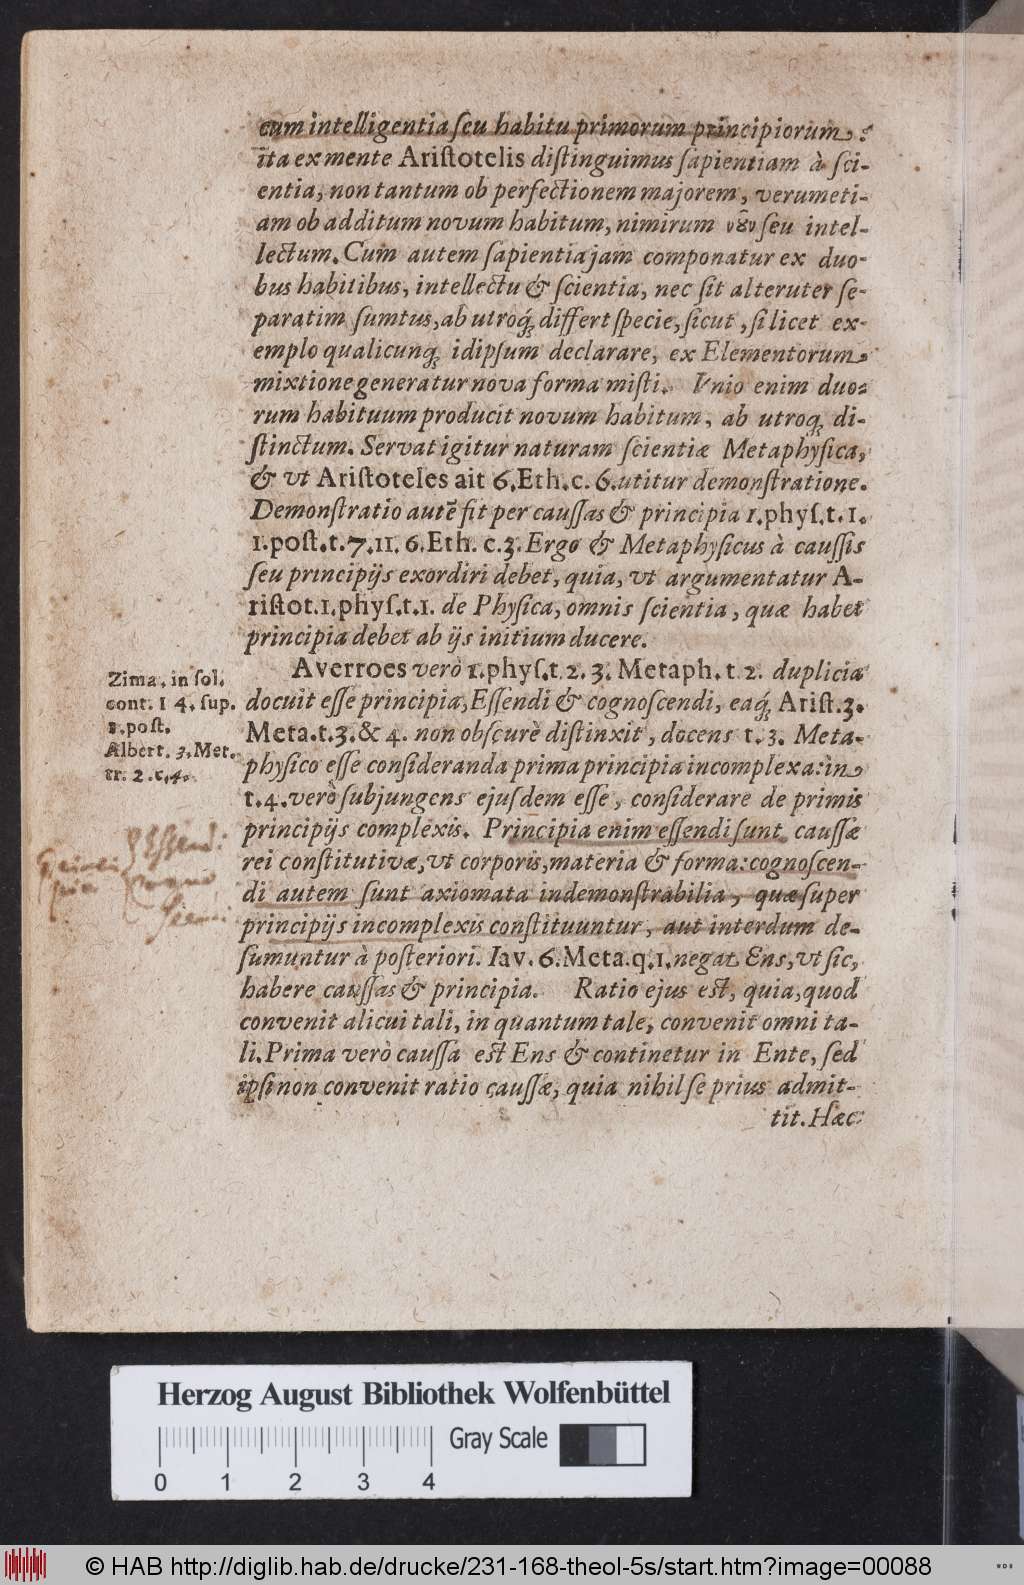 cum intelligentia ſeu habitu primorum principiorum:
ita ex mente Ariſtotelis diſtinguimus ſapientiam à ſci-
entia, non tantum ob perfectionem majorem, verumeti-
am ob additum novum habitum, nimirum νȣ͂ν ſeu intel-
lectum. Cum autem ſapientia jam componatur ex duo-
bus habitibus, intellectu & ſcientia, nec ſit alteruter ſe-
paratim ſumtus, ab utroq́; differt ſpecie, ſicut, ſi licet ex-
emplo qualicunq; idipſum declarare, ex Elementorum
mixtione generatur nova forma miſti. Vnio enim duo-
rum habituum producit novum habitum, ab utroq; di-
ſtinctum. Servat igitur naturam ſcientiæ Metaphyſica,
& vt Ariſtoteles ait 6. Eth. c. 6. utitur demonſtratione.
Demonſtratio autẽ fit per cauſſas & principia 1. phyſ. t. 1.
1. poſt. t. 7. 11. 6. Eth. c. 3. Ergo & Metaphyſicus à cauſſis
ſeu principijs exordiri debet, quia, vt argumentatur A-
riſtot. 1. phyſ. t. 1. de Phyſica, omnis ſcientia, quæ habet
principia debet ab ijs initium ducere.
Averroes verò 1. phyſ. t. 2. 3. Metaph. t. 2. duplicia
docuit eſſe principia, Eſſendi & cognoſcendi, eaq́; Ariſt. 3.
Meta. t. 3. & 4. non obſcurè diſtinxit, docens t. 3. Meta-
phyſico eſſe conſideranda prima principia incomplexa: in
t. 4. verò ſubjungens ejuſdem eſſe, conſiderare de primis
principijs complexis. Principia enim eſſendi ſunt cauſſæ
rei conſtitutivæ, vt corporis, materia & forma: cognoſcen-
di autem ſunt axiomata indemonſtrabilia, quæ ſuper
principijs incomplexis conſtituuntur, aut interdum de-
ſumuntur à poſteriori. Iav. 6. Meta. q. 1. negat Ens, vt ſic,
habere cauſſas & principia. Ratio ejus eſt, quia, quod
convenit alicui tali, in quantum tale, convenit omni ta-
li. Prima verò cauſſa eſt Ens & continetur in Ente, ſed
ipſi non convenit ratio cauſſæ, quia nihil ſe prius admit-
tit. Hæc
Zima. in ſol.
cont. 14. ſup.
1. poſt.
Albert. 3. Met.
tr. 2. c. 4.
Essendi
Herzog August Bibliothek Wolfenbüttel
Gray Scale
0 1 2 3 4
© HAB http://diglib.hab.de/drucke/231-168-theol-5s/start.htm?image=00088